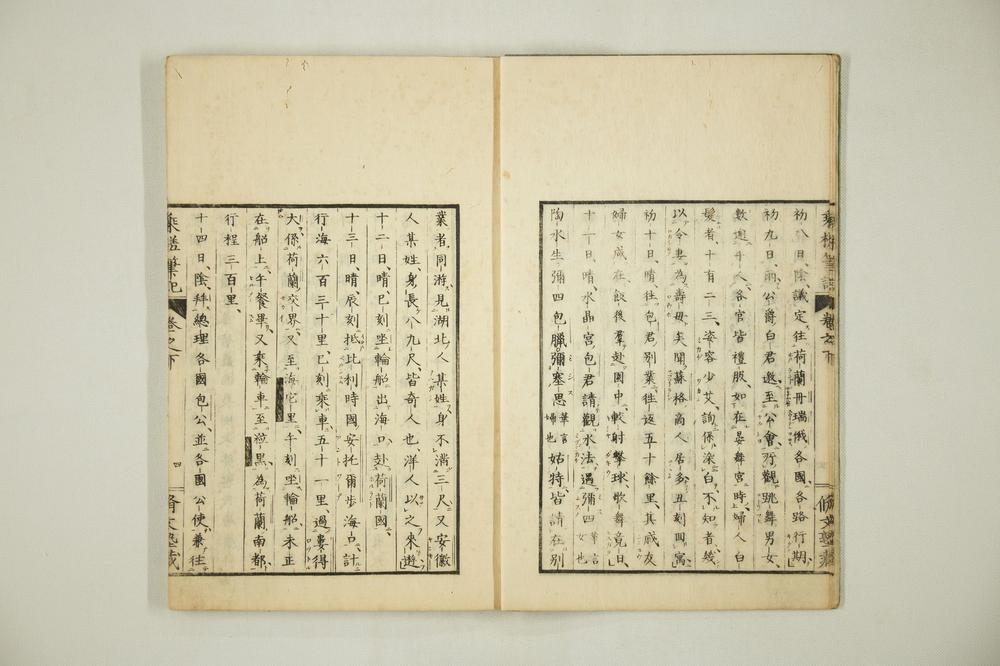 初八日、陰、議定往荷蘭丹瑞俄各國、各路行期、
初九日、雨、公爵白君邀至公會所觀跳舞男女、
數逾千人、各官皆禮服、如在宴舞宮時、婦人白
髮者、十有二三、姿容少艾、詢係染白、不知者幾
以令妻為壽母矣、聞蘇格髙人居多、丑刻回寓、
初十日、晴、往包君別業、往返五十餘里、其戚友
婦女咸在、飯後羣赴園中、較射擊球、歌舞竟日、
十一日、晴、水晶宮包君請觀水法、遇彌四華言女也
陶木生、彌四包臘彌塞思華言婦也姑特、皆請在別
業者、同游見湖北人某姓、身不滿三尺、又安徽
人某姓、身長八九尺、皆奇人也、洋人以之來遊、
十二日、晴、巳刻坐輪船出海口、赴荷蘭國、
十三日、晴、辰刻抵比利時國安托爾步海口、計
行海六百三十里、巳刻乘車五十一里、過婁得
大係荷蘭交界、又至海它里、午刻坐輪船、未正
在船上午餐畢、又乘輪車、至黑、為荷蘭南都、
行程三百里、
十四日、陰、拜總理各國包公、並各國公使、兼往
乘槎筆記
卷之下
四